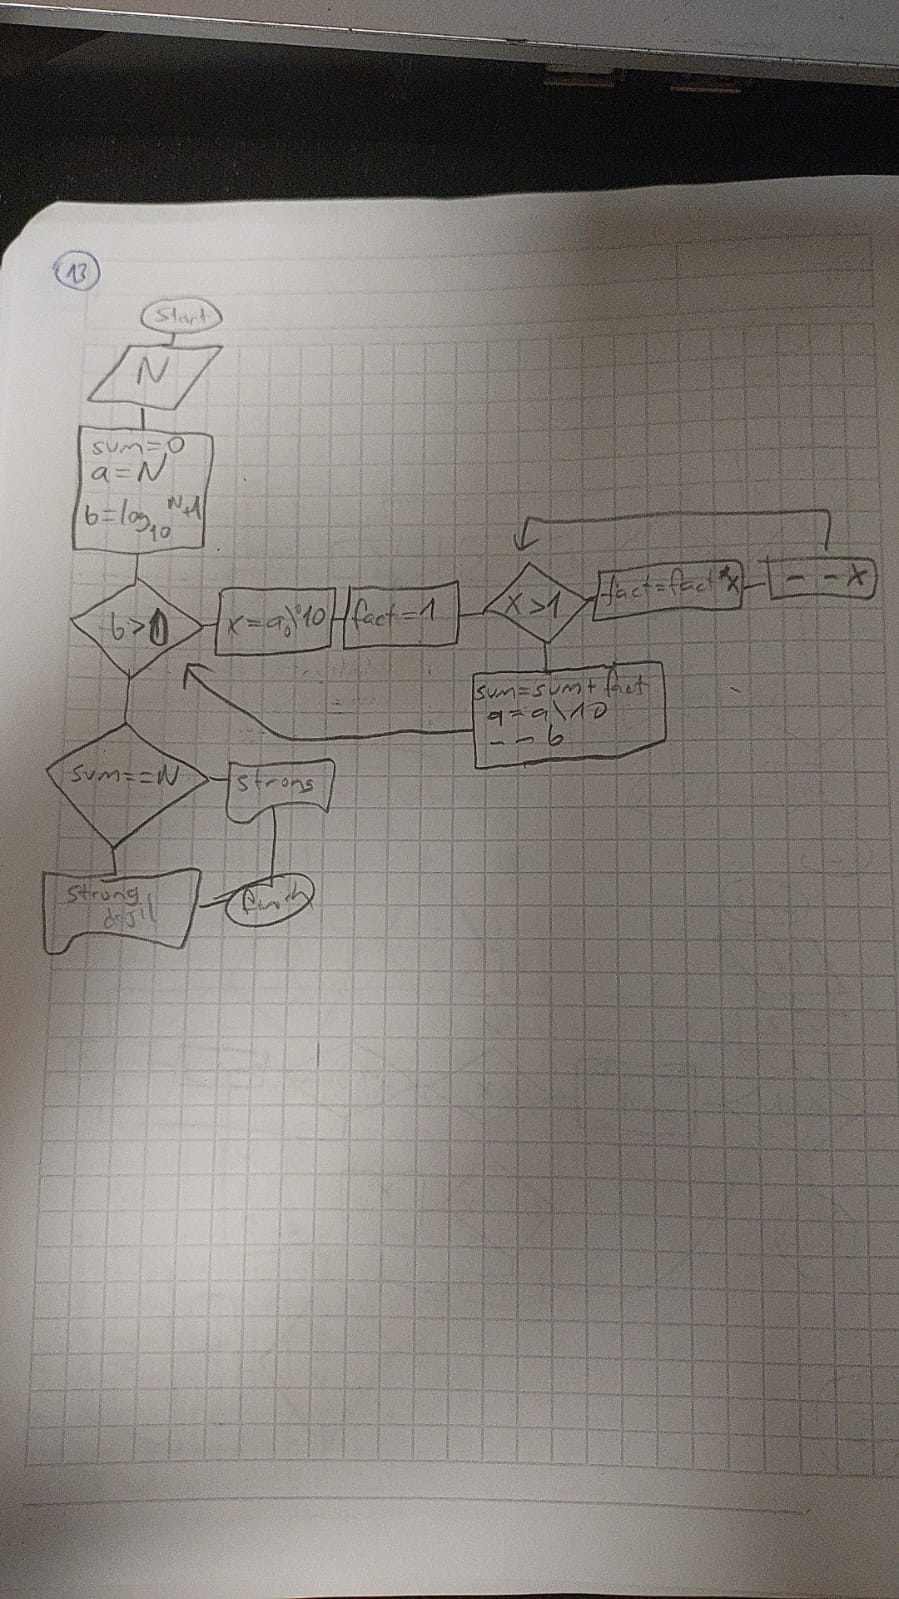 13
Start
N
sum=0
a=N
b=log10 N+1
b>0
x=a%10
fact=1
x>1
fact=fact*x
--x
sum=sum+fact
a=a\10
--b
sum==N
strong
strong
finish